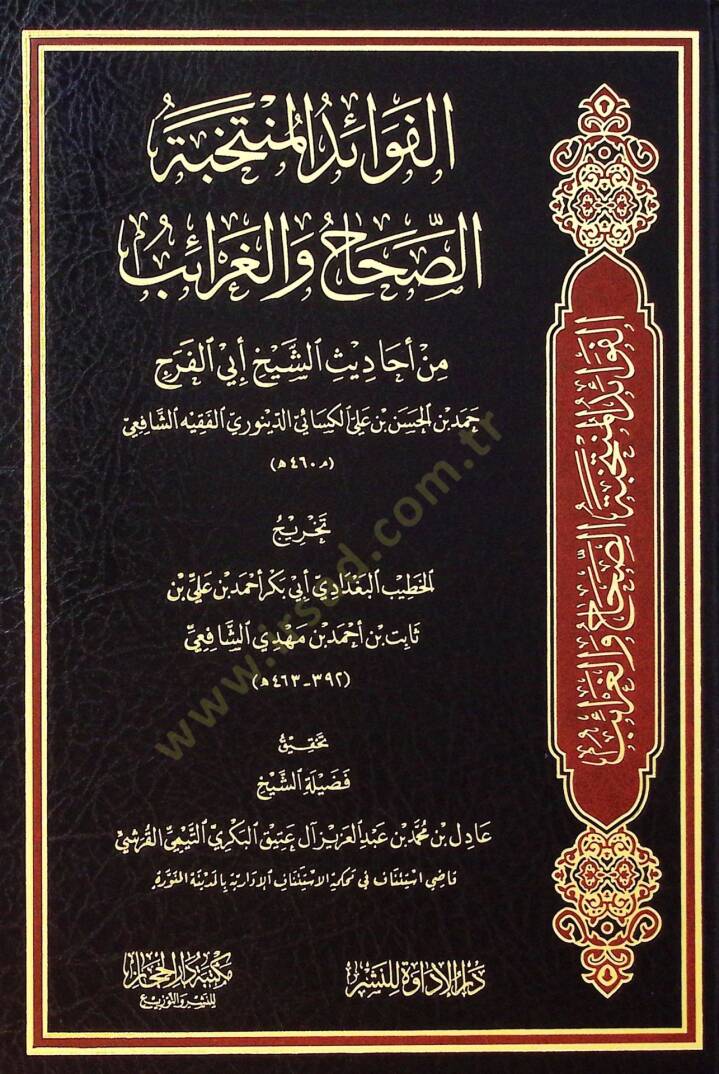 الفَوَائِدُ المُنْتَخَبَةُ
الصِّحَاحُ وَالغَرَائِبُ
مِنْ أَحَادِيثِ الشَّيْخِ أَبِي الفَرَجِ
حَمَد بْنِ الحَسَنِ بْنِ عَلِيّ الكِسَائِيّ الدِّينَوَرِيّ الفَقِيهِ الشَّافِعِيّ
(م ٤٦٠ ه)
تَخْرِيجُ
الخَطِيبِ البَغْدَادِيّ أَبِي بَكْر أَحْمَد بْنِ عَلِيِّ بْنِ
ثَابِت بْنِ أَحْمَد بْنِ مَهْدِي الشَّافِعِيّ
(٣٩٢ - ٤٦٣ ه)
تَحْقِيقُ
فَضِيلَةِ الشَّيْخِ
عَادِل بْنِ مُحَمَّد بْنِ عَبْدِ العَزِيزِ آل عَتِيق البَكْرِيّ التَّيْمِيّ القُرَشِيّ
قاضي استئناف في محكمة الاستئناف الإدارية بالمدينة المنورة
دَارُ الإِدَاوَةِ لِلنَّشْرِ
مكتبة دار الحجاز
للنشر والتوزيع
الفَوَائِدُ المُنْتَخَبَةُ الصِّحَاحُ وَالغَرَائِبُ
www.irsad.com.tr